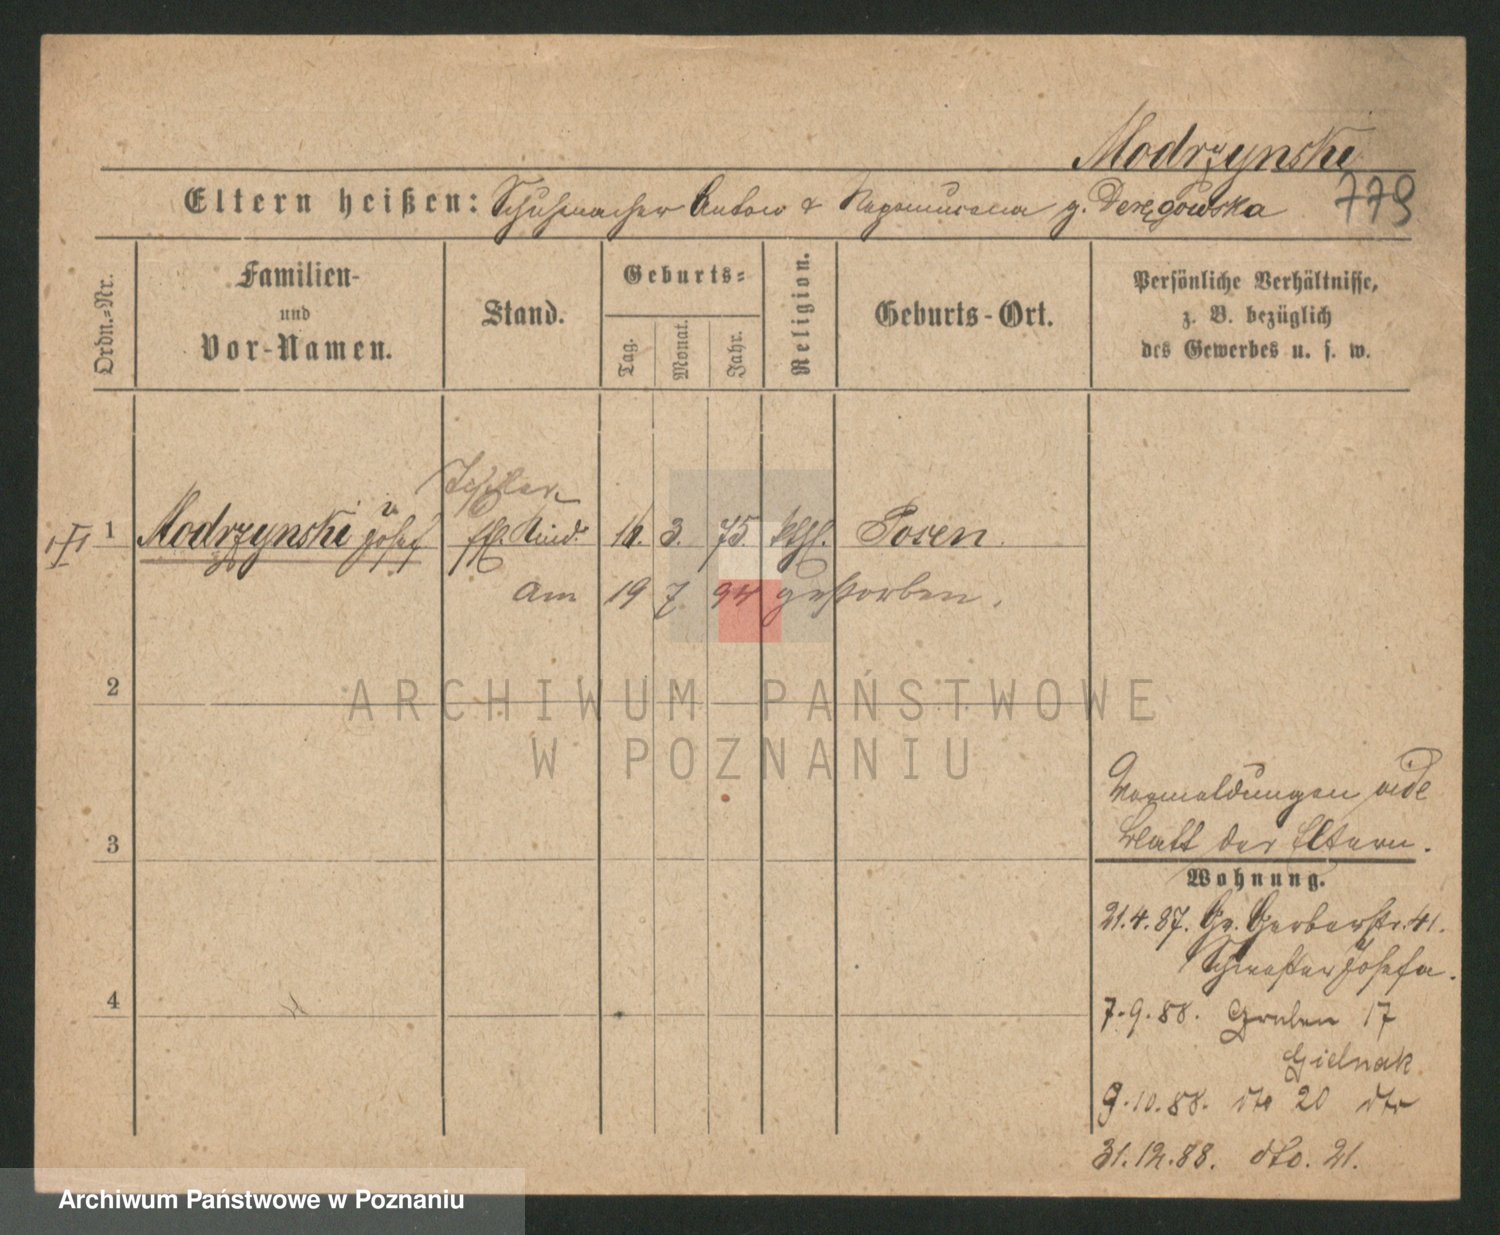 Modrzynski
779
Eltern heißen: Schuhmacher Anton & Nepomucena g. Deręgowska
Ordn.-Nr.
Familien-
und
Vor-Namen.
Stand.
Geburts-
Tag.
Monat.
Jahr.
Religion.
Geburts-Ort.
Persönliche Verhältnisse,
z. B. bezüglich
des Gewerbes u. s. w.
Tischler
1 Modrzynski Josef Kind 3. 75. kthl. Posen.
am 19 7 94 gestorben.
2
ARCHIWUM PAŃSTWOWE
W POZNANIU
3
4
Vormeldungen vide
Blatt der Eltern.
Wohnung.
21.4.87. Gr. Gerberstr. 41.
Schwester Josefa.
7.9.88. Graben 17
Gielnak
9.10.88. dto 20 dto
31.12.88. dto. 21.
Archiwum Państwowe w Poznaniu